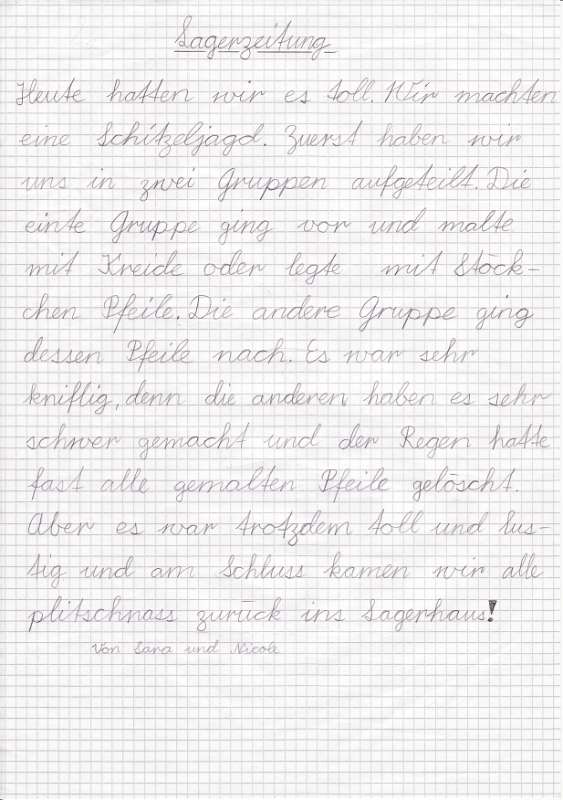 Lagerzeitung
Heute hatten wir es toll. Wir machten
eine Schitzeljagd. Zuerst haben wir
uns in zwei Gruppen aufgeteilt. Die
einte Gruppe ging vor und malte
mit Kreide oder legte mit Stöck-
chen Pfeile. Die andere Gruppe ging
dessen Pfeile nach. Es war sehr
kniflig, denn die anderen haben es sehr
schwer gemacht und der Regen hatte
fast alle gemalten Pfeile gelöscht.
Aber es war trotzdem toll und lus-
tig und am Schluss kamen wir alle
plitschnass zurück ins Lagerhaus!
Von Sara und Nicole